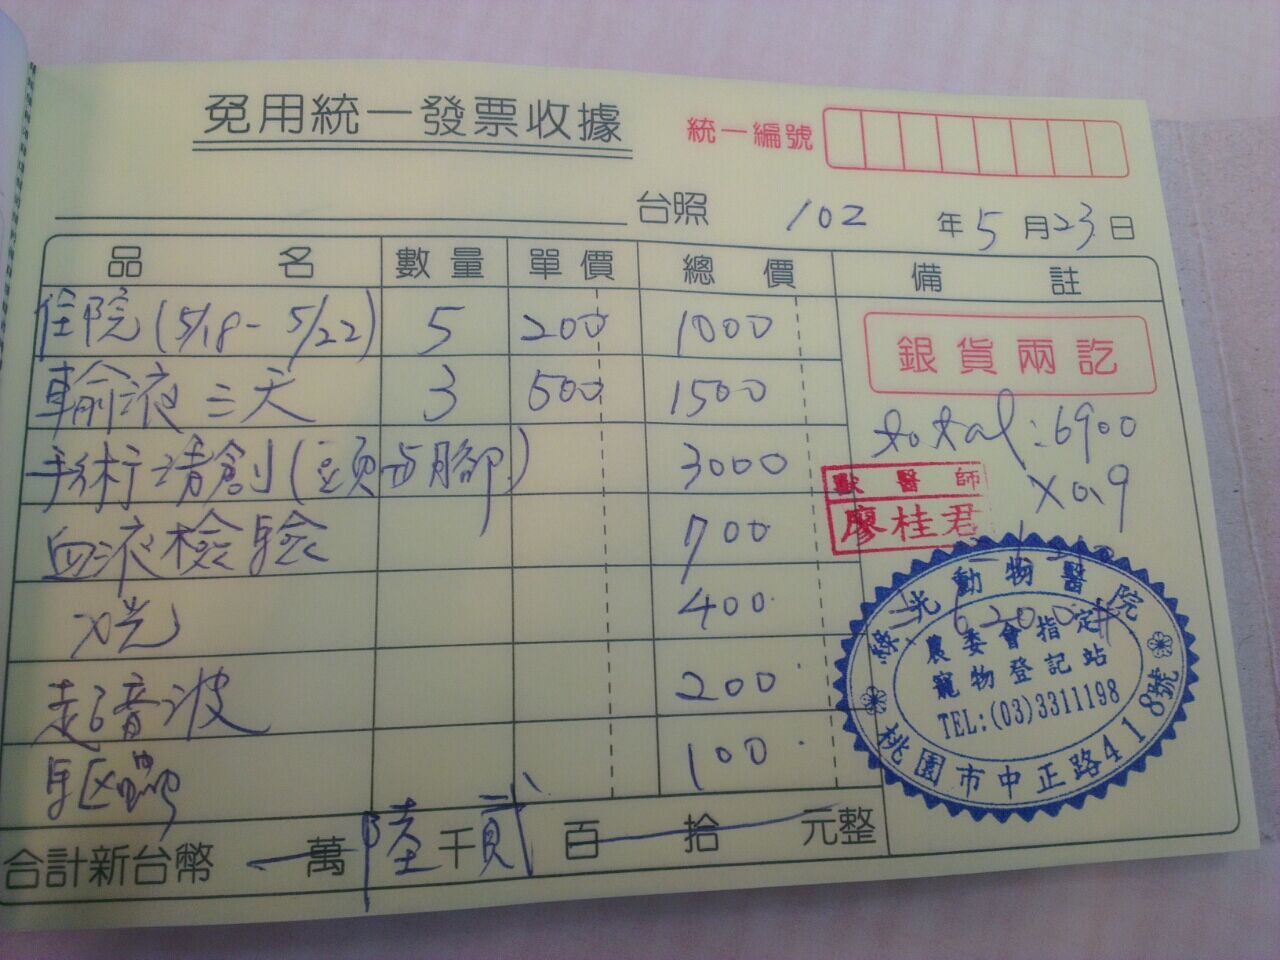 免用統一發票收據
統一編號
台照 102 年 5 月 23 日
品名 數量 單價 總價 備註
住院(5/18-5/22) 5 200 1000
銀貨兩訖
輸液三天 3 500 1500
total:6900
手術清創(頭與腳) 3000
x0.9
獸醫師
廖桂君
血液檢驗 700
X光 400
6200
超音波 200
驅蟲 100
綠光動物醫院
農委會指定
寵物登記站
TEL:(03)3311198
桃園市中正路418號
合計新台幣 萬 陸 千 貳 百 拾 元整